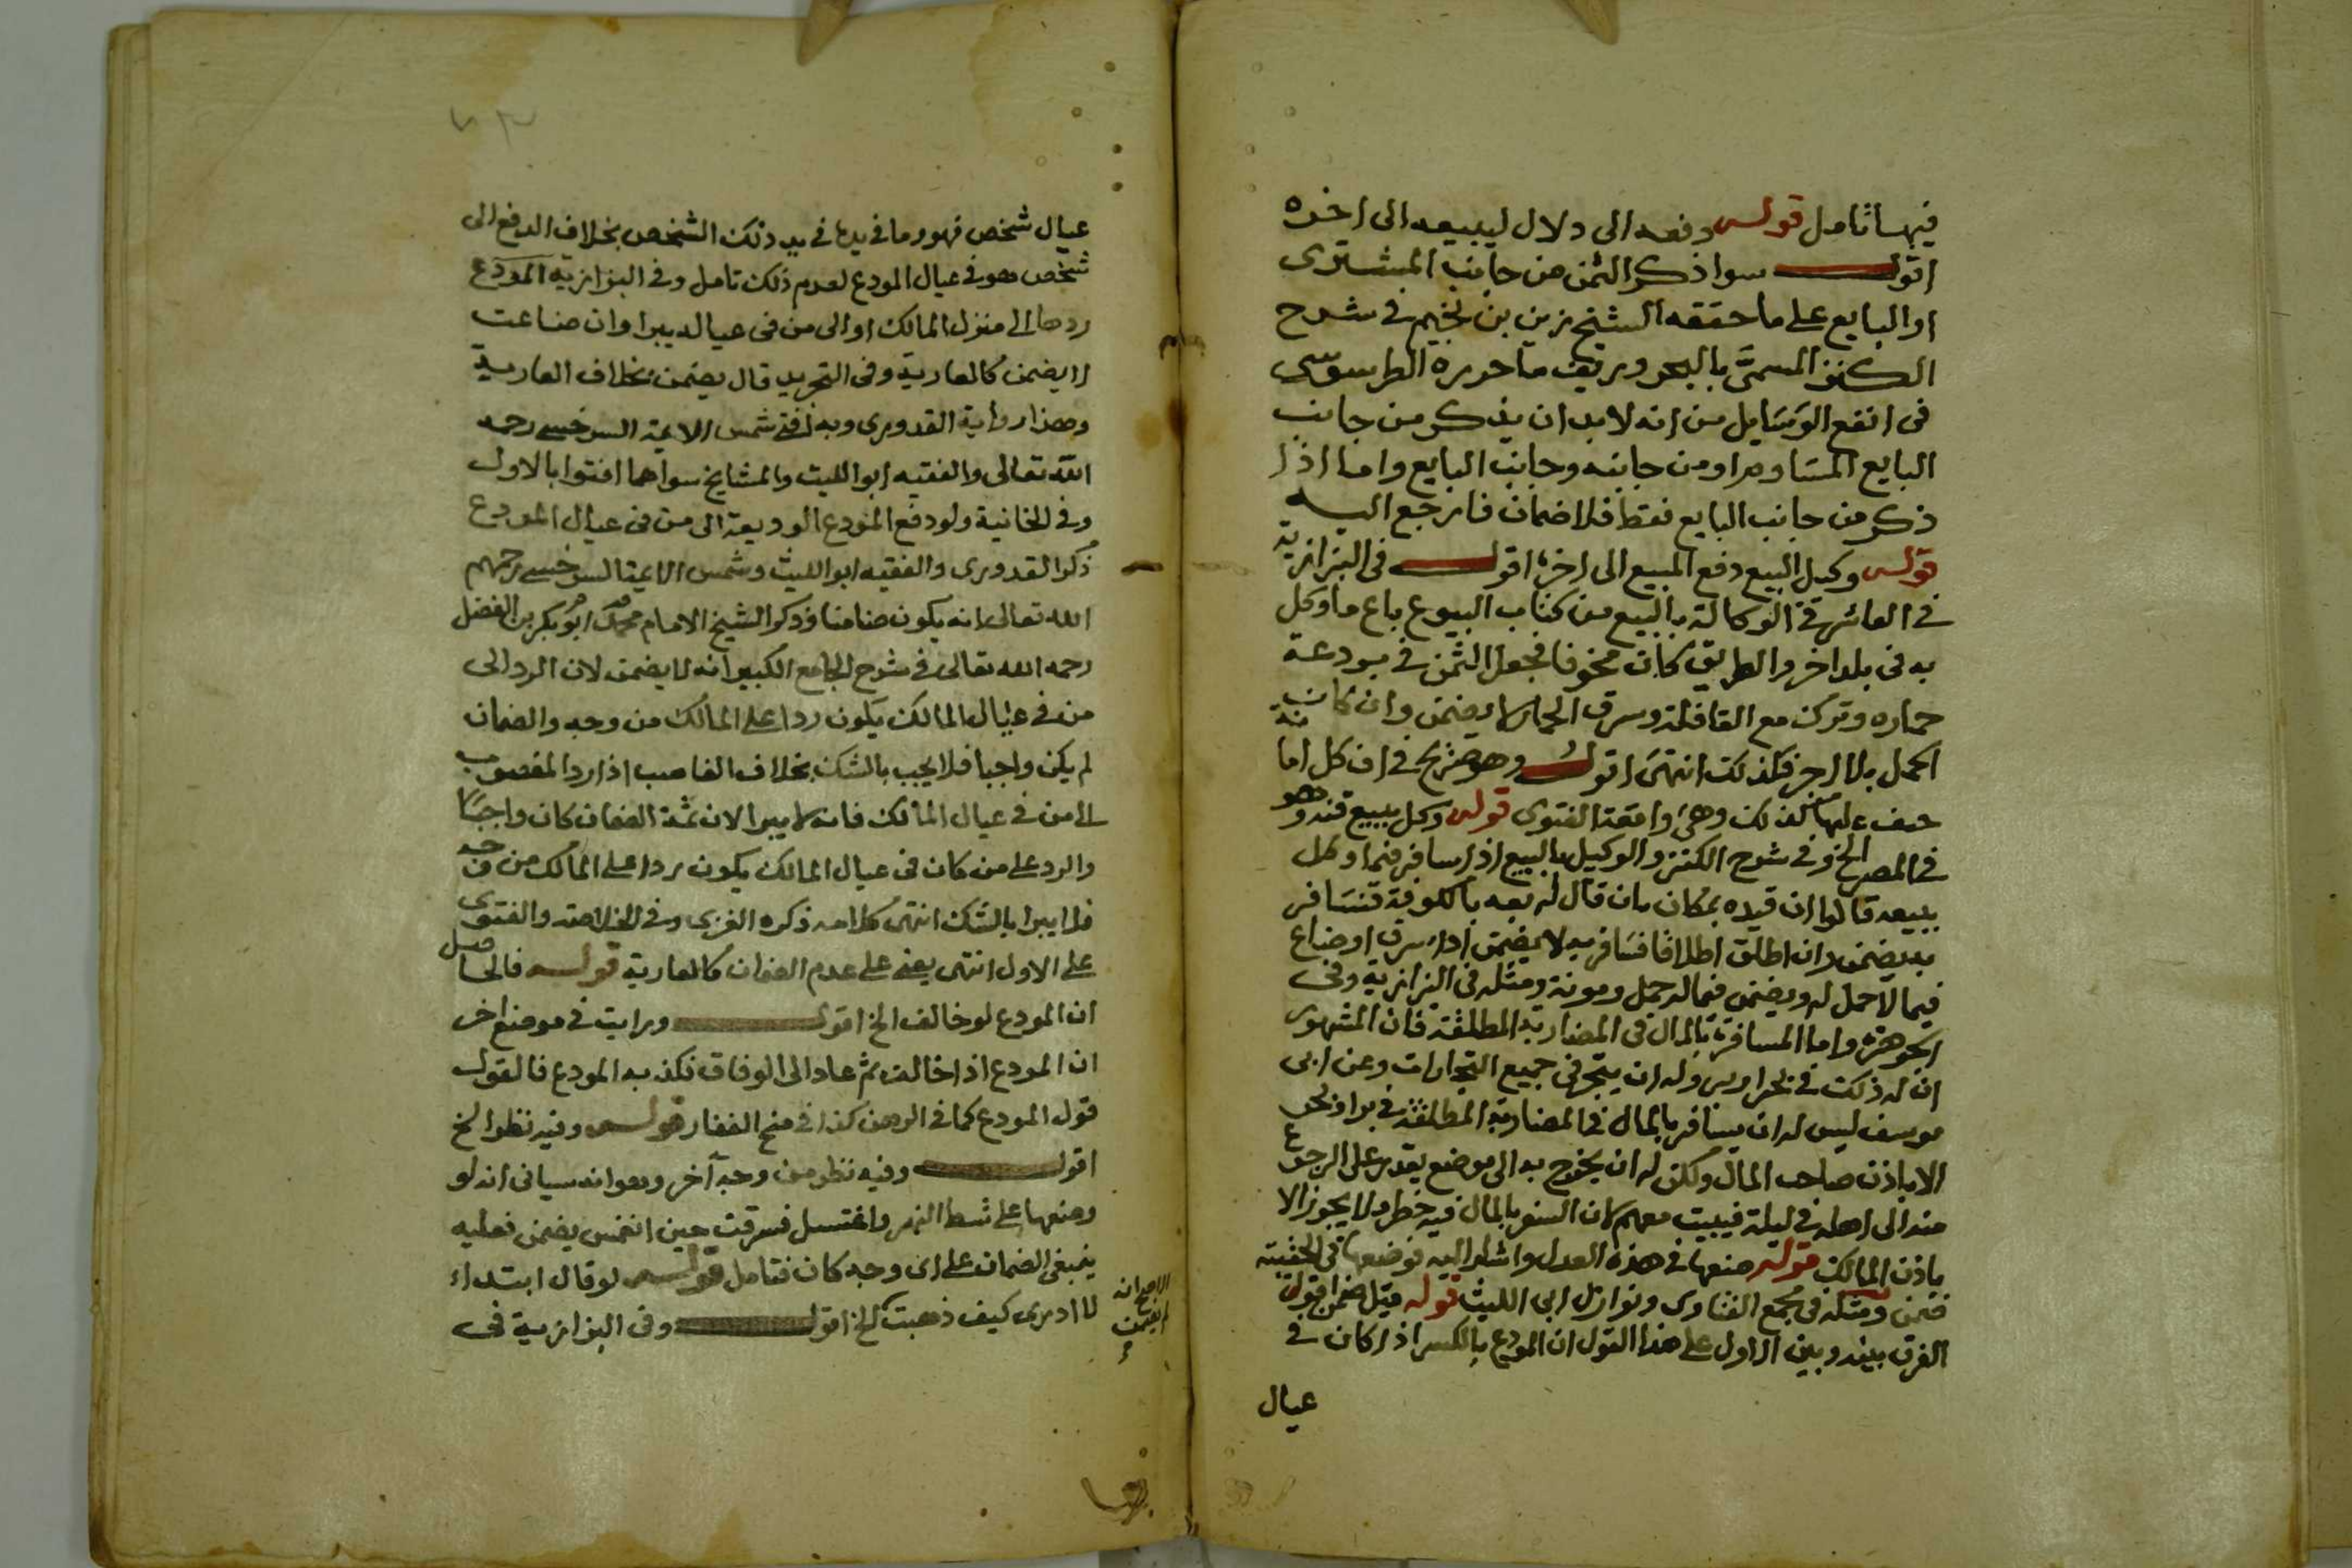 فيها تامل قوله دفعه الى دلال ليبيعه الى اخره
اقول سوا ذكر الثمن من جانب المشترى
او البايع على ما حققه الشيخ زين بن نجيم في شرح
الكنز المسمى بالبحر وزيف ما حرره الطرسوسى
فى انفع الوسايل من انه لا بد ان يذكر من جانب
البايع المساوم او من جانبه وجانب البايع واما اذا
ذكر من جانب البايع فقط فلا ضمان فارجع اليه
قوله وكيل البيع دفع المبيع الى اخره اقول فى البزازية
في العاشر فى الوكالة بالبيع من كتاب البيوع باع ما وكل
به فى بلد اخر والطريق كان مخوفا فجعل الثمن في بردعة
حماره وترك مع القافلة وسرق الحمار لا يضمن وان كان
الحمل بلا اجر فكذلك انتهى اقول وهو صريح في ان كل امانة
خيف عليها كذلك وهى واقعة الفتوى قوله وكل ببيع قنه وهو
في المصر الخ وفى شرح الكنز والوكيل بالبيع اذا سافر فيما وكل
ببيعه قالوا ان قيده بمكان بان قال له بعه بالكوفة فسافر
به يضمن وان اطلق اطلاقا فسافر به لا يضمن اذا سرق او ضاع
فيما لا حمل له ويضمن فيما له حمل ومونة ومثله فى البزازية وفى
الجوهرة واما المسافرة بالمال فى المضاربة المطلقة فان المشهور
ان له ذلك في بحر او بر وله ان يتجر فى جميع التجارات وعن ابى
يوسف ليس له ان يسافر بالمال فى المضاربة المطلقة في بر او بحر
الا باذن صاحب المال ولكن له ان يخرج به الى موضع يقدر على الرجوع
منه الى اهله في ليلة فيبيت معهم لان السفر بالمال فيه خطر ولا يجوز الا
باذن المالك قوله ضعها في هذه العدل واشار اليه فوضعها فى الحقيبة
ضمن ومثله فى مجمع الفتاوى ونوازل ابى الليث قوله قيل ضمن اقول
الفرق بينه وبين الاول على هذا القول ان المودع بالكسر اذا كان في
عيال
عيال شخص فهو وما فى يدها في يد ذلك الشخص بخلاف الدفع الى
شخص هو في عيال المودع لعدم ذلك تامل وفى البزازية المودع
ردها الى منزل المالك او الى من فى عياله يبرا وان ضاعت
لا يضمن كالعارية وفى التجريد قال يضمن بخلاف العارية
وهذا رواية القدورى وبه افتى شمس الايمة السرخسى رحمه
الله تعالى والفقيه ابو الليث والمشايخ سواهما افتوا بالاول
وفى الخانية ولو دفع المودع الوديعة الى من فى عيال المودع
ذكر القدورى والفقيه ابو الليث وشمس الايمة السرخسى رحمهم
الله تعالى انه يكون ضامنا وذكر الشيخ الامام محمد ابو بكر بن الفضل
رحمه الله تعالى في شرح الجامع الكبير انه لا يضمن لان الرد الى
من في عيال المالك يكون ردا على المالك من وجه والضمان
لم يكن واجبا فلا يجب بالشك بخلاف الغاصب اذا رد المغصوب
الى من في عيال المالك فانه لا يبرا لان ثمة الضمان كان واجبا
والرد على من كان فى عيال المالك يكون ردا على المالك من وجه
فلا يبرا بالشك انتهى كلامه ذكره الغزى وفى الخلاصة والفتوى
على الاول انتهى يعنى على عدم الضمان كالعارية قوله فالحاصل
ان المودع لو خالف الخ اقول ورايت في موضع اخر
ان المودع اذا خالف ثم عاد الى الوفاق فكذبه المودع فالقول
قول المودع كما في الرهن كذا في منح الغفار قوله وفيه نظر الخ
اقول وفيه نظر من وجه آخر وهو انه سياتى انه لو
وضعها على شط النهر واغتسل فسرقت حين انغمس يضمن فعليه
ينبغى الضمان على اى وجه كان فتامل قوله لو قال ابتداء
لا ادرى كيف ذهبت الخ اقول وفى البزازية فى
الاصح انه
لا يضمن